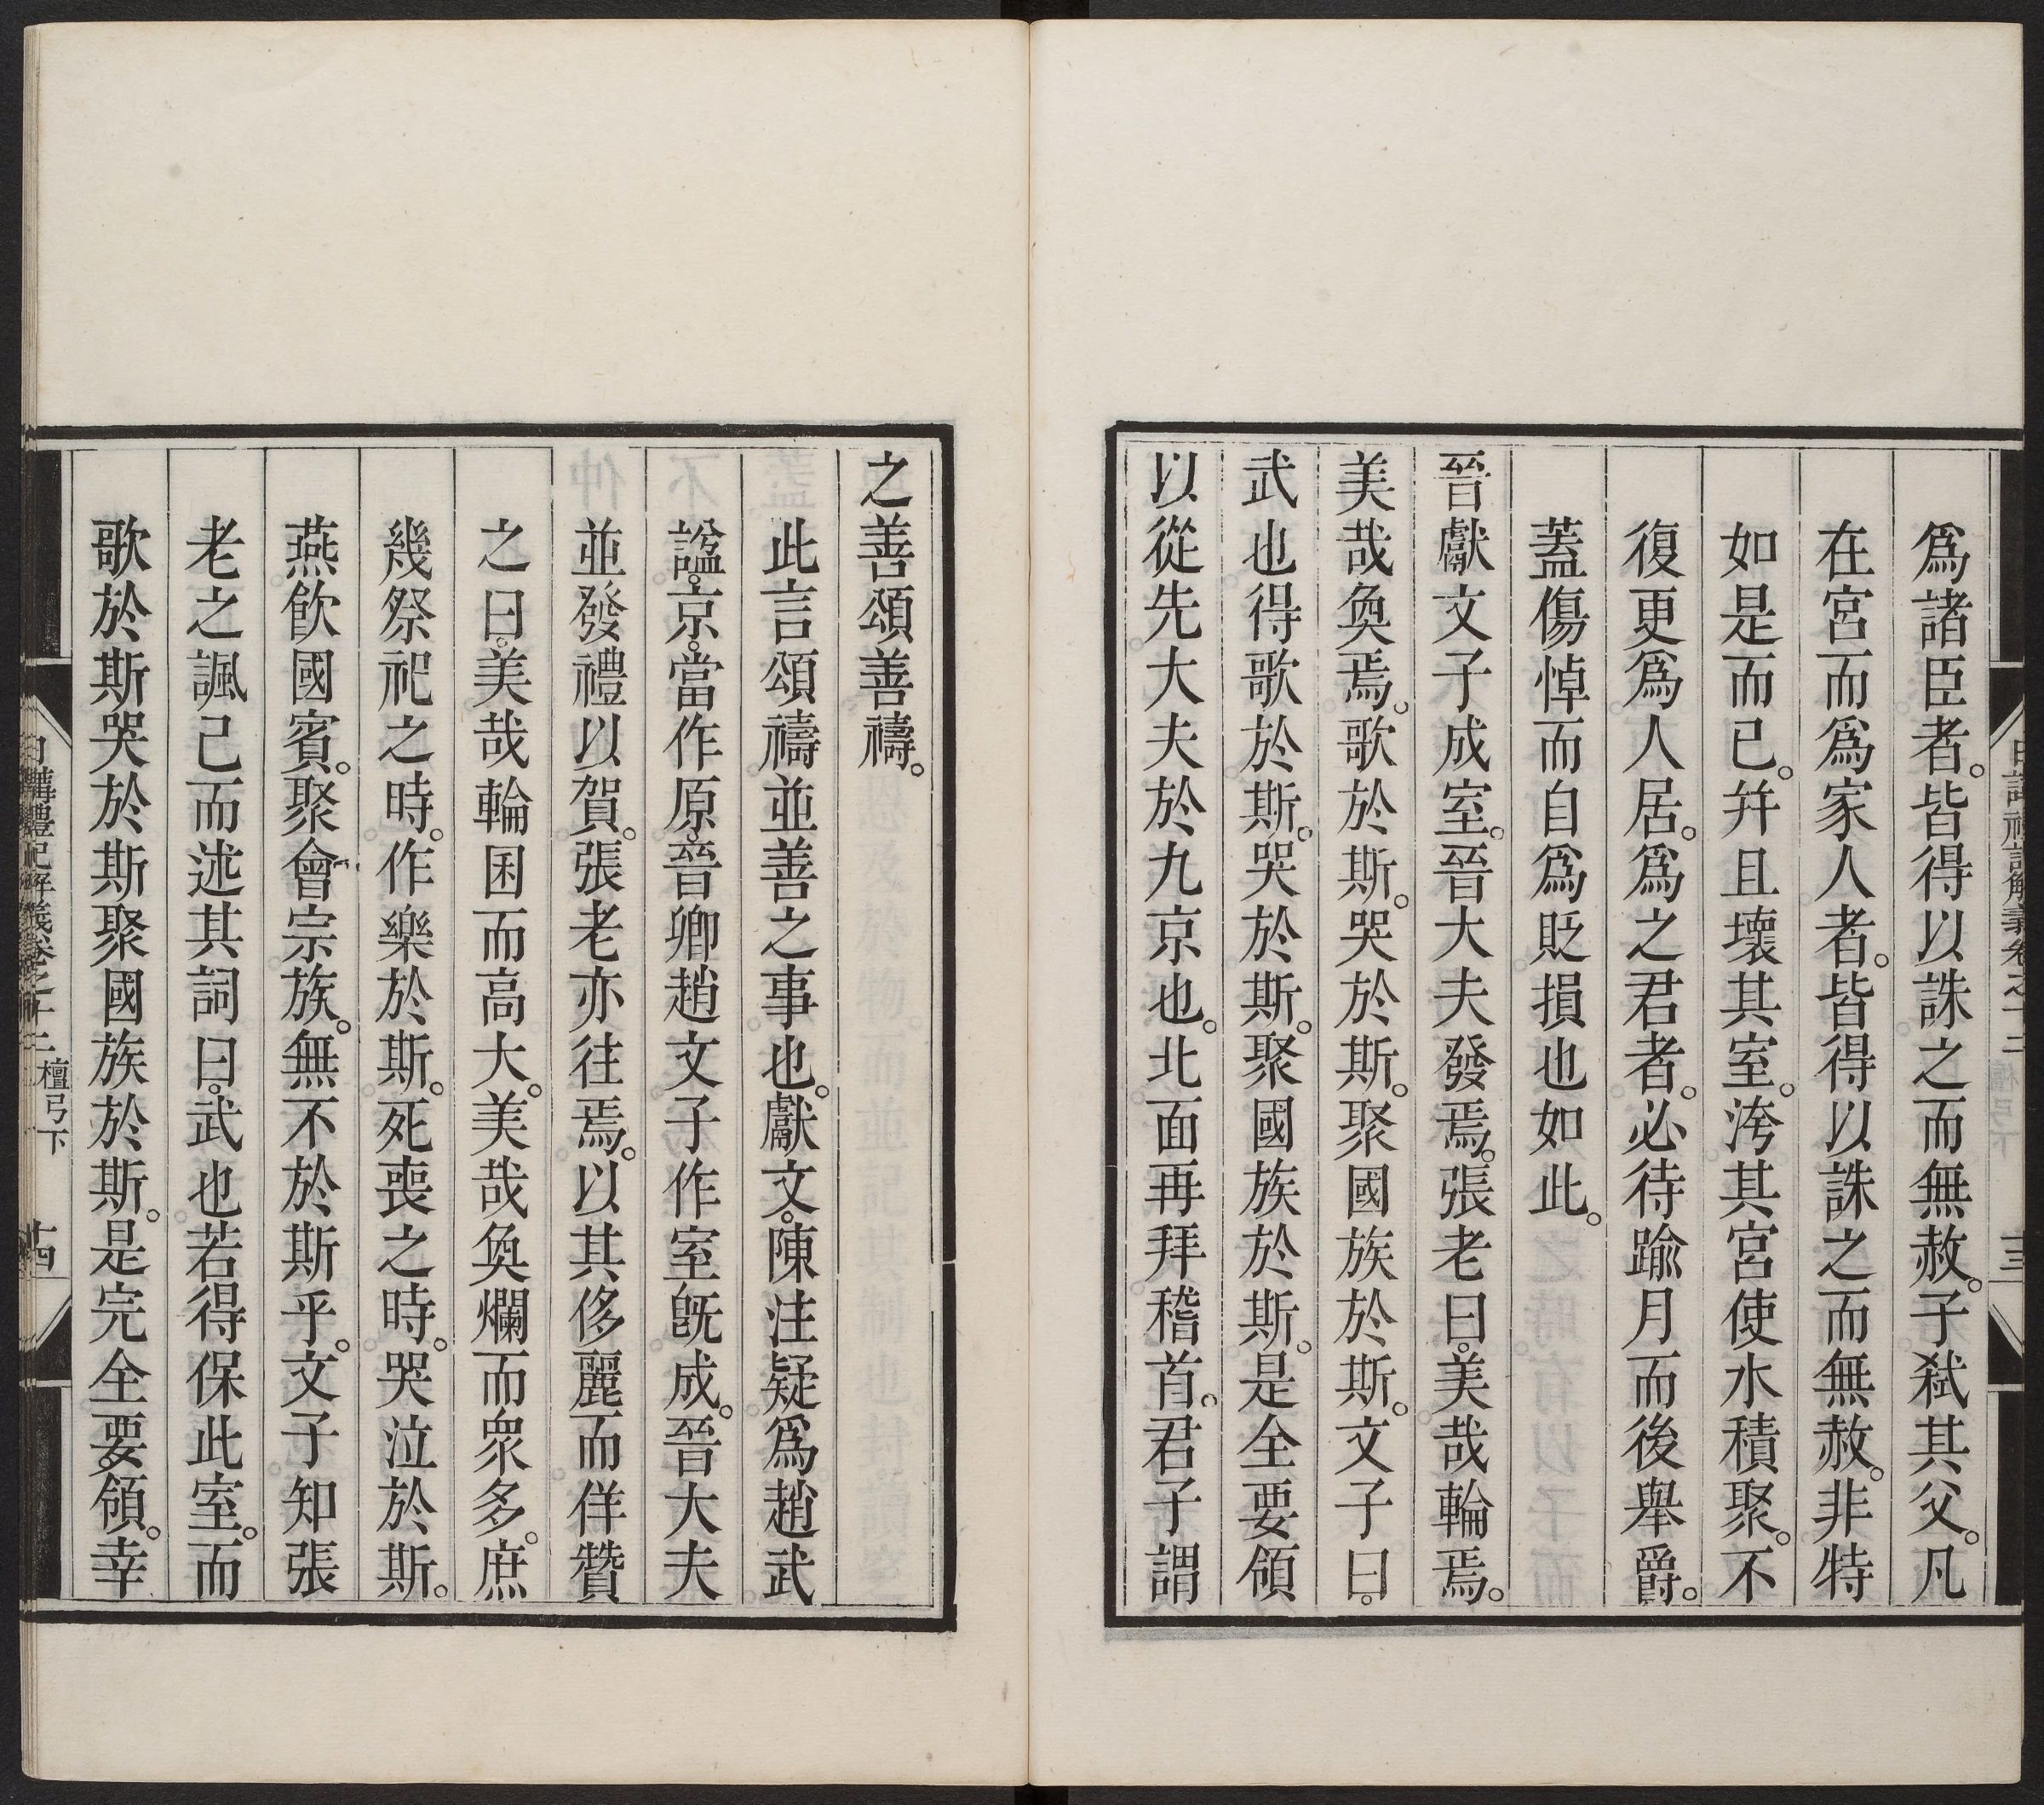 爲諸臣者。皆得以誅之而無赦。子弑其父。凡
在宮而爲家人者。皆得以誅之而無赦。非特
如是而已。幷且壞其室。洿其宮使水積聚。不
復更爲人居。爲之君者。必待踰月而後舉爵。
蓋傷悼而自爲貶損也如此。
晉獻文子成室。晉大夫發焉。張老曰。美哉輪焉。
美哉奐焉。歌於斯。哭於斯。聚國族於斯。文子曰。
武也得歌於斯。哭於斯。聚國族於斯。是全要領
以從先大夫於九京也。北面再拜稽首。君子謂
之善頌善禱。
此言頌禱並善之事也。獻文。陳注疑爲趙武
諡。京。當作原。晉卿趙文子作室旣成。晉大夫
並發禮以賀。張老亦往焉。以其侈麗而佯贊
之曰。美哉輪囷而高大。美哉奐爛而衆多。庶
幾祭祀之時。作樂於斯。死喪之時。哭泣於斯。
燕飮國賓。聚會宗族。無不於斯乎。文子知張
老之諷己而述其詞曰。武也若得保此室。而
歌於斯哭於斯聚國族於斯。是完全要領。幸
日講禮記解義卷之十二 檀弓下 十四